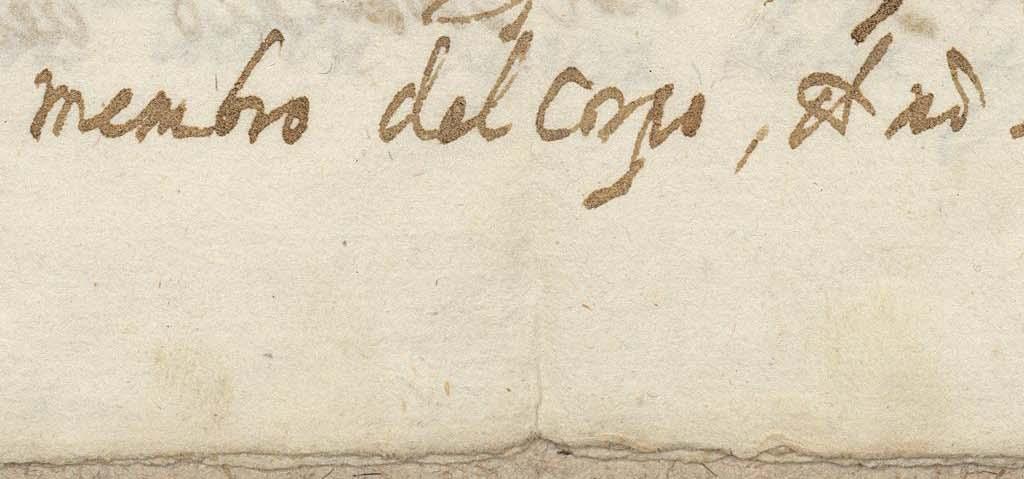 membro del corpo, et nõ